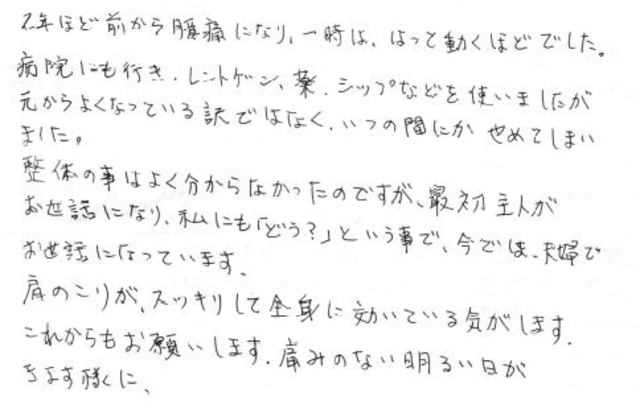 2年ほど前から腰痛になり、一時は、はって動くほどでした。
病院にも行き、レントゲン、薬、シップなどを使いましたが
元からよくなっている訳ではなく、いつの間にかやめてしまい
ました。
整体の事はよく分からなかったのですが、最初主人が
お世話になり、私にも「どう?」という事で、今では、夫婦で
お世話になっています。
肩のこりが、スッキリして全身に効いている気がします。
これからもお願いします。痛みのない明るい日が
きます様に、